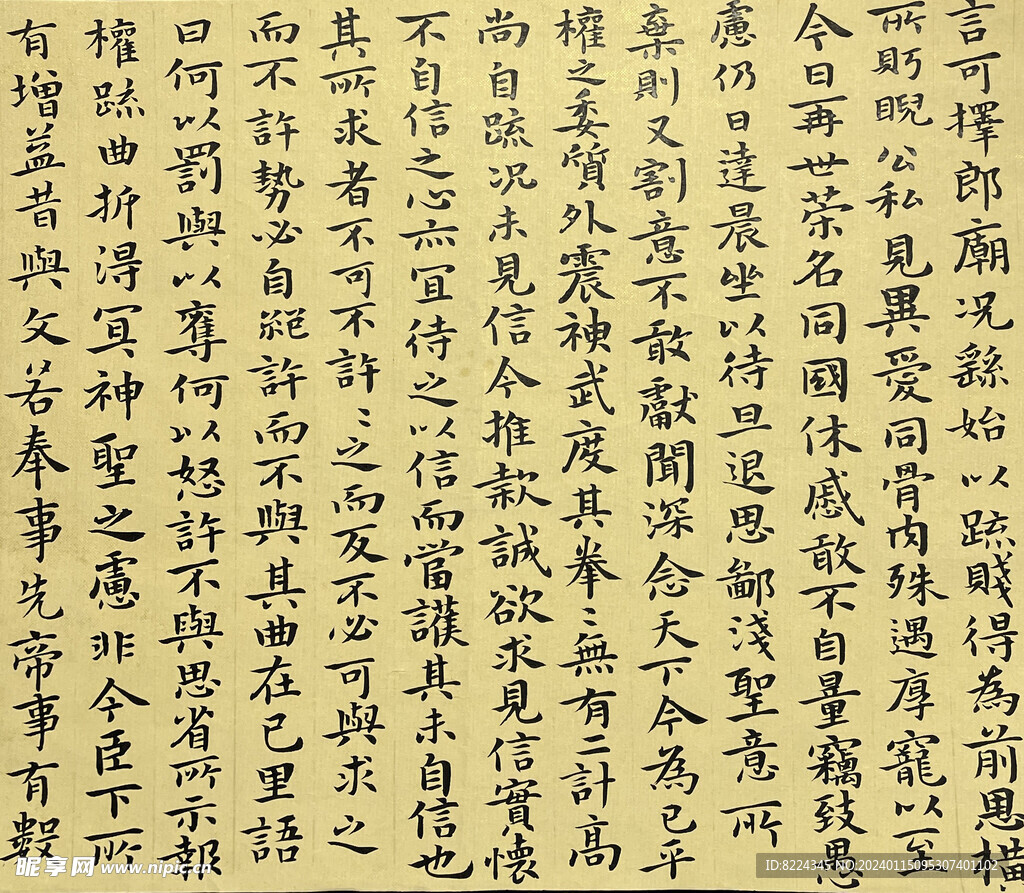 言可擇郎廟况繇始以疏賤得為前恩橫
所眄睨公私見異愛同骨肉殊遇厚寵以至
今日再世荣名同國休慼敢不自量竊致愚
慮仍日達晨坐以待旦退思鄙淺聖意所
棄則又割意不敢獻聞深念天下今為已平
權之委質外震神武度其拳〻無有二計高
尚自疏况未見信今推款誠欲求見信實懷
不自信之心亦宜待之以信而當護其未自信也
其所求者不可不許〻之而反不必可與求之
而不許勢必自絕許而不與其曲在已里語
曰何以罰與以奪何以怒許不與思省所示報
權疏曲折得冝神聖之慮非今臣下所
有增益昔與文若奉事先帝事有數
昵享网 www.nipic.cn
ID:8224345 NO:20240115095307401102